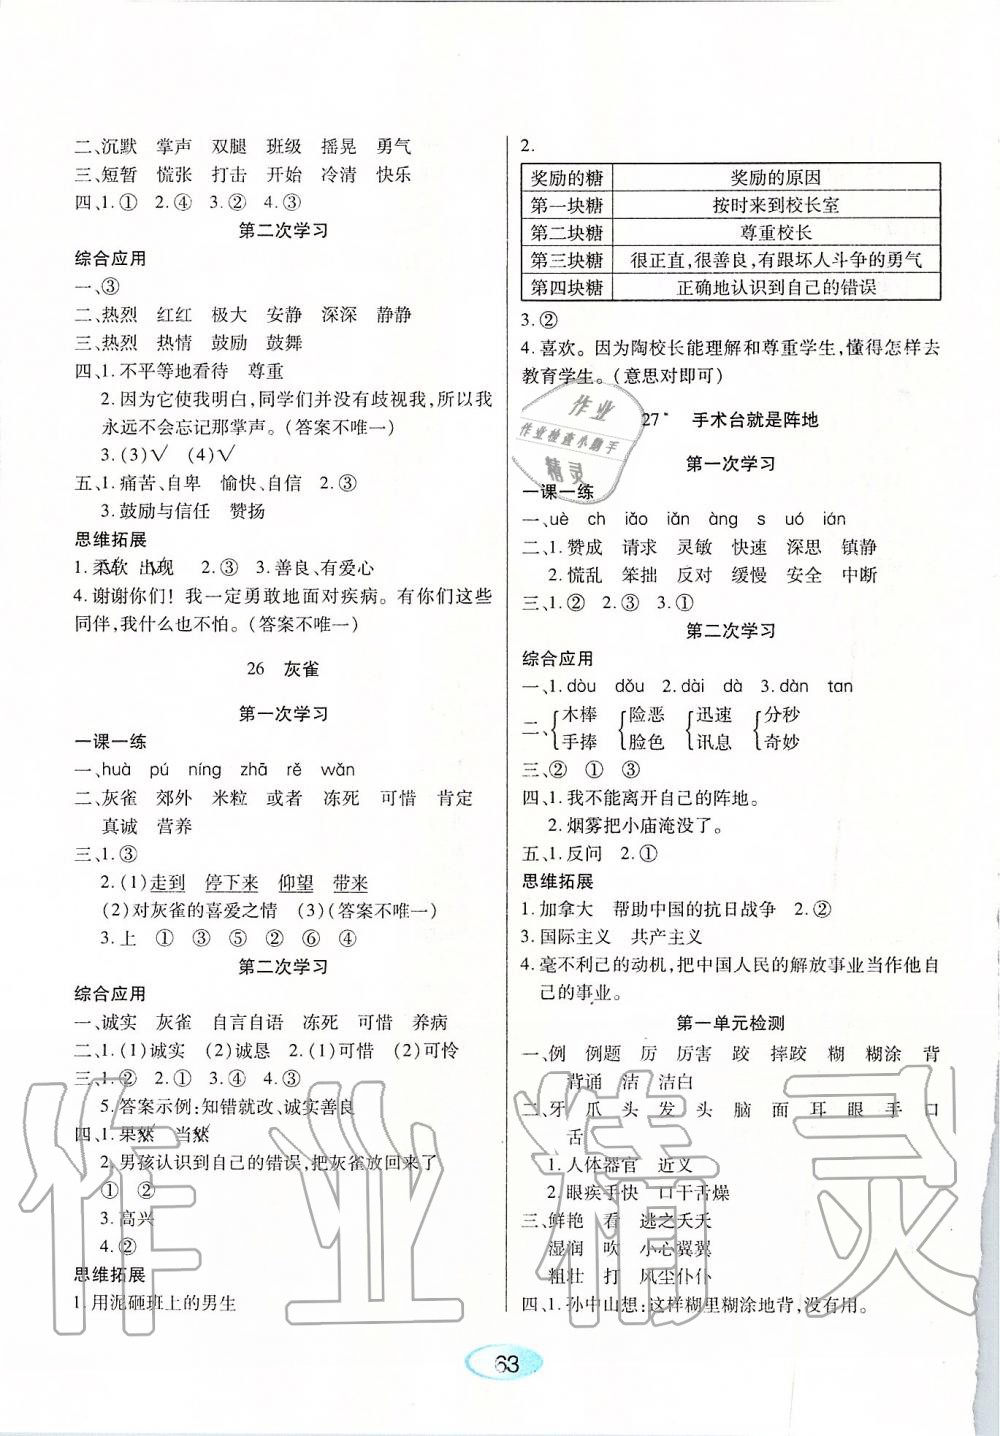 二、沉默 掌声 双腿 班级 摇晃 勇气
三、短暂 慌张 打击 开始 冷清 快乐
四、1.① 2.④ 3.② 4.③
第二次学习
综合应用
一、③
二、热烈 红红 极大 安静 深深 静静
三、热烈 热情 鼓励 鼓舞
四、1.不平等地看待 尊重
2.因为它使我明白,同学们并没有歧视我,所以我
永远不会忘记那掌声。(答案不唯一)
3.(3)√ (4)√
五、1.痛苦、自卑 愉快、自信 2.③
3.鼓励与信任 赞扬
思维拓展
1.柔软 出现 2.③ 3.善良、有爱心
4.谢谢你们! 我一定勇敢地面对疾病。有你们这些
同伴,我什么也不怕。(答案不唯一)
26 灰雀
第一次学习
一课一练
一、huà pú níng zhā rě wǎn
二、灰雀 郊外 米粒 或者 冻死 可惜 肯定
真诚 营养
三、1.③
2.(1)走到 停下来 仰望 带来
(2)对灰雀的喜爱之情 (3)(答案不唯一)
3.上 ① ③ ⑤ ② ⑥ ④
第二次学习
综合应用
一、诚实 灰雀 自言自语 冻死 可惜 养病
二、1.(1)诚实 (2)诚恳 2.(1)可惜 (2)可怜
三、1.② 2.① 3.④ 4.③
5.答案示例:知错就改、诚实善良
四、1.果然 当然
2.男孩认识到自己的错误,把灰雀放回来了
① ②
3.高兴
4.②
思维拓展
1.用泥砸班上的男生
2.
奖励的糖 奖励的原因
第一块糖 按时来到校长室
第二块糖 尊重校长
第三块糖 很正直,很善良,有跟坏人斗争的勇气
第四块糖 正确地认识到自己的错误
3.②
4.喜欢。因为陶校长能理解和尊重学生,懂得怎样去
教育学生。(意思对即可)
27* 手术台就是阵地
第一次学习
一课一练
一、uè ch iǎo iǎn àng s uó ián
二、1.赞成 请求 灵敏 快速 深思 镇静
2.慌乱 笨拙 反对 缓慢 安全 中断
三、1.② 2.③ 3.①
第二次学习
综合应用
一、1.dòu dǒu 2.dài dà 3.dàn tan
二、{木棒 {险恶 {迅速 {分秒
手捧 脸色 讯息 奇妙
三、② ① ③
四、1.我不能离开自己的阵地。
2.烟雾把小庙淹没了。
五、1.反问 2.①
思维拓展
1.加拿大 帮助中国的抗日战争 2.②
3.国际主义 共产主义
4.毫不利己的动机,把中国人民的解放事业当作他自
己的事业。
第一单元检测
一、例 例题 厉 厉害 跤 摔跤 糊 糊涂 背
背诵 洁 洁白
二、牙 爪 头 发 头 脑 面 耳 眼 手 口
舌
1.人体器官 近义
2.眼疾手快 口干舌燥
三、鲜艳 看 逃之夭夭
湿润 吹 小心翼翼
粗壮 打 风尘仆仆
四、1.孙中山想:这样糊里糊涂地背,没有用。
63
作业
作业检查小助手
精灵
作业精灵